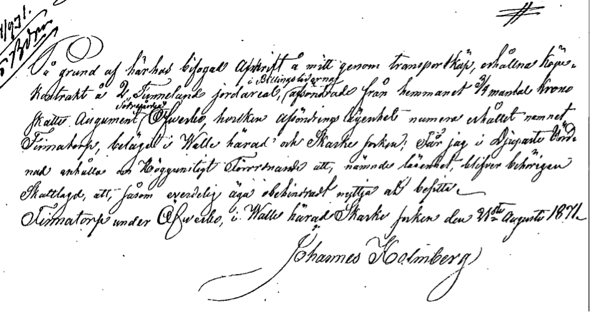 På grund af härhos bifogad Afskrift å mitt genom transportköp, erhållna köpe-
kontrakt å 2 Tunneland jordareal, i Billingslidarna afsöndrad från hemmanet 3/4 mantal krono
skatte Augment Öfverbo, hvilken afsöndrings lägenhet numera erhållet namnet
Finnatorp, belägen i Walle härad och Skarke socken; Får jag i Djupaste Vörd-
nad anhålla om Höggunstigt Förordnande att, nämnde lägenhet, blifver behörigen
Skattlagd, att, såsom everdelig äga obehindradt nyttja och besitta.
Finnatorp under Öfverbo, i Walle härad Skarke socken den 21sta Augusti 1871.
Johannes Holmberg